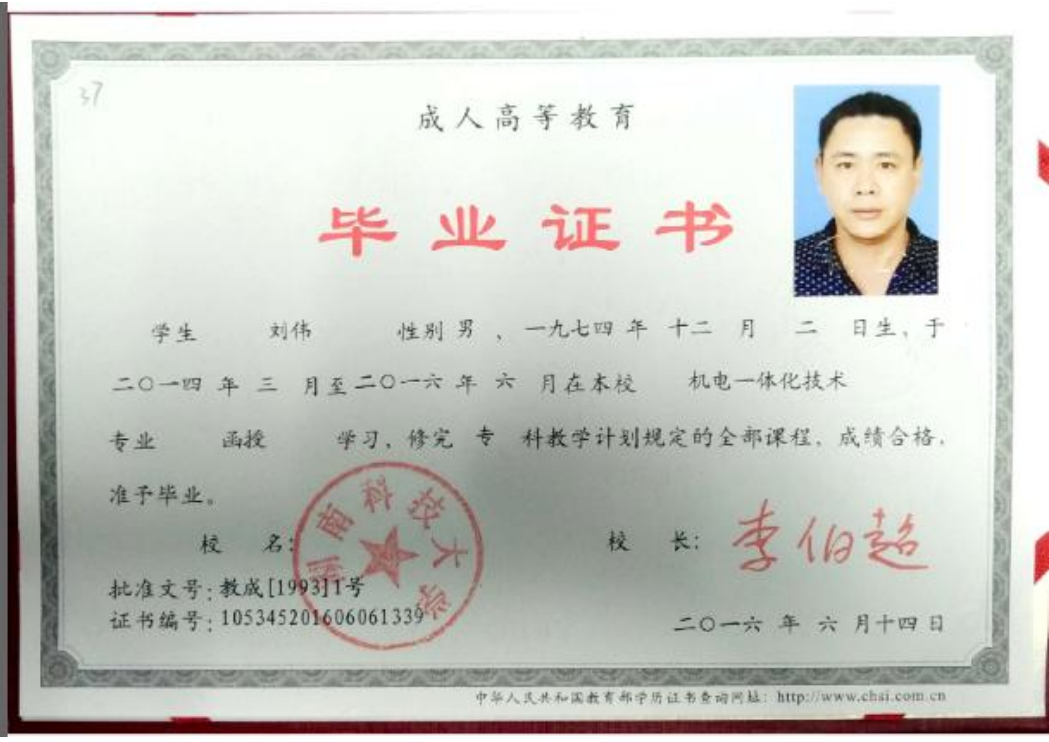 37
成人高等教育
毕业证书
学生 刘伟 性别 男 ，一九七四 年 十二 月 二 日生，于
二〇一四 年 三 月至 二〇一六 年 六 月在本校 机电一体化技术
专业 函授 学习，修完 专 科教学计划规定的全部课程，成绩合格，
准予毕业。
湖南科技大学
校 名： 校 长：李伯超
批准文号：教成[1993]1号
证书编号：105345201606061339
二〇一六 年 六 月十四日
中华人民共和国教育部学历证书查询网址：http://www.chsi.com.cn